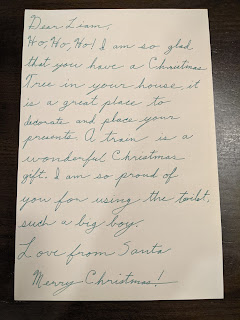 Dear Liam,
Ho, Ho, Ho! I am so glad
that you have a Christmas
Tree in your house, it
is a great place to
decorate and place your
presents. A train is a
wonderful Christmas
gift. I am so proud of
you for using the toilet,
such a big boy.
Love from Santa
Merry Christmas!